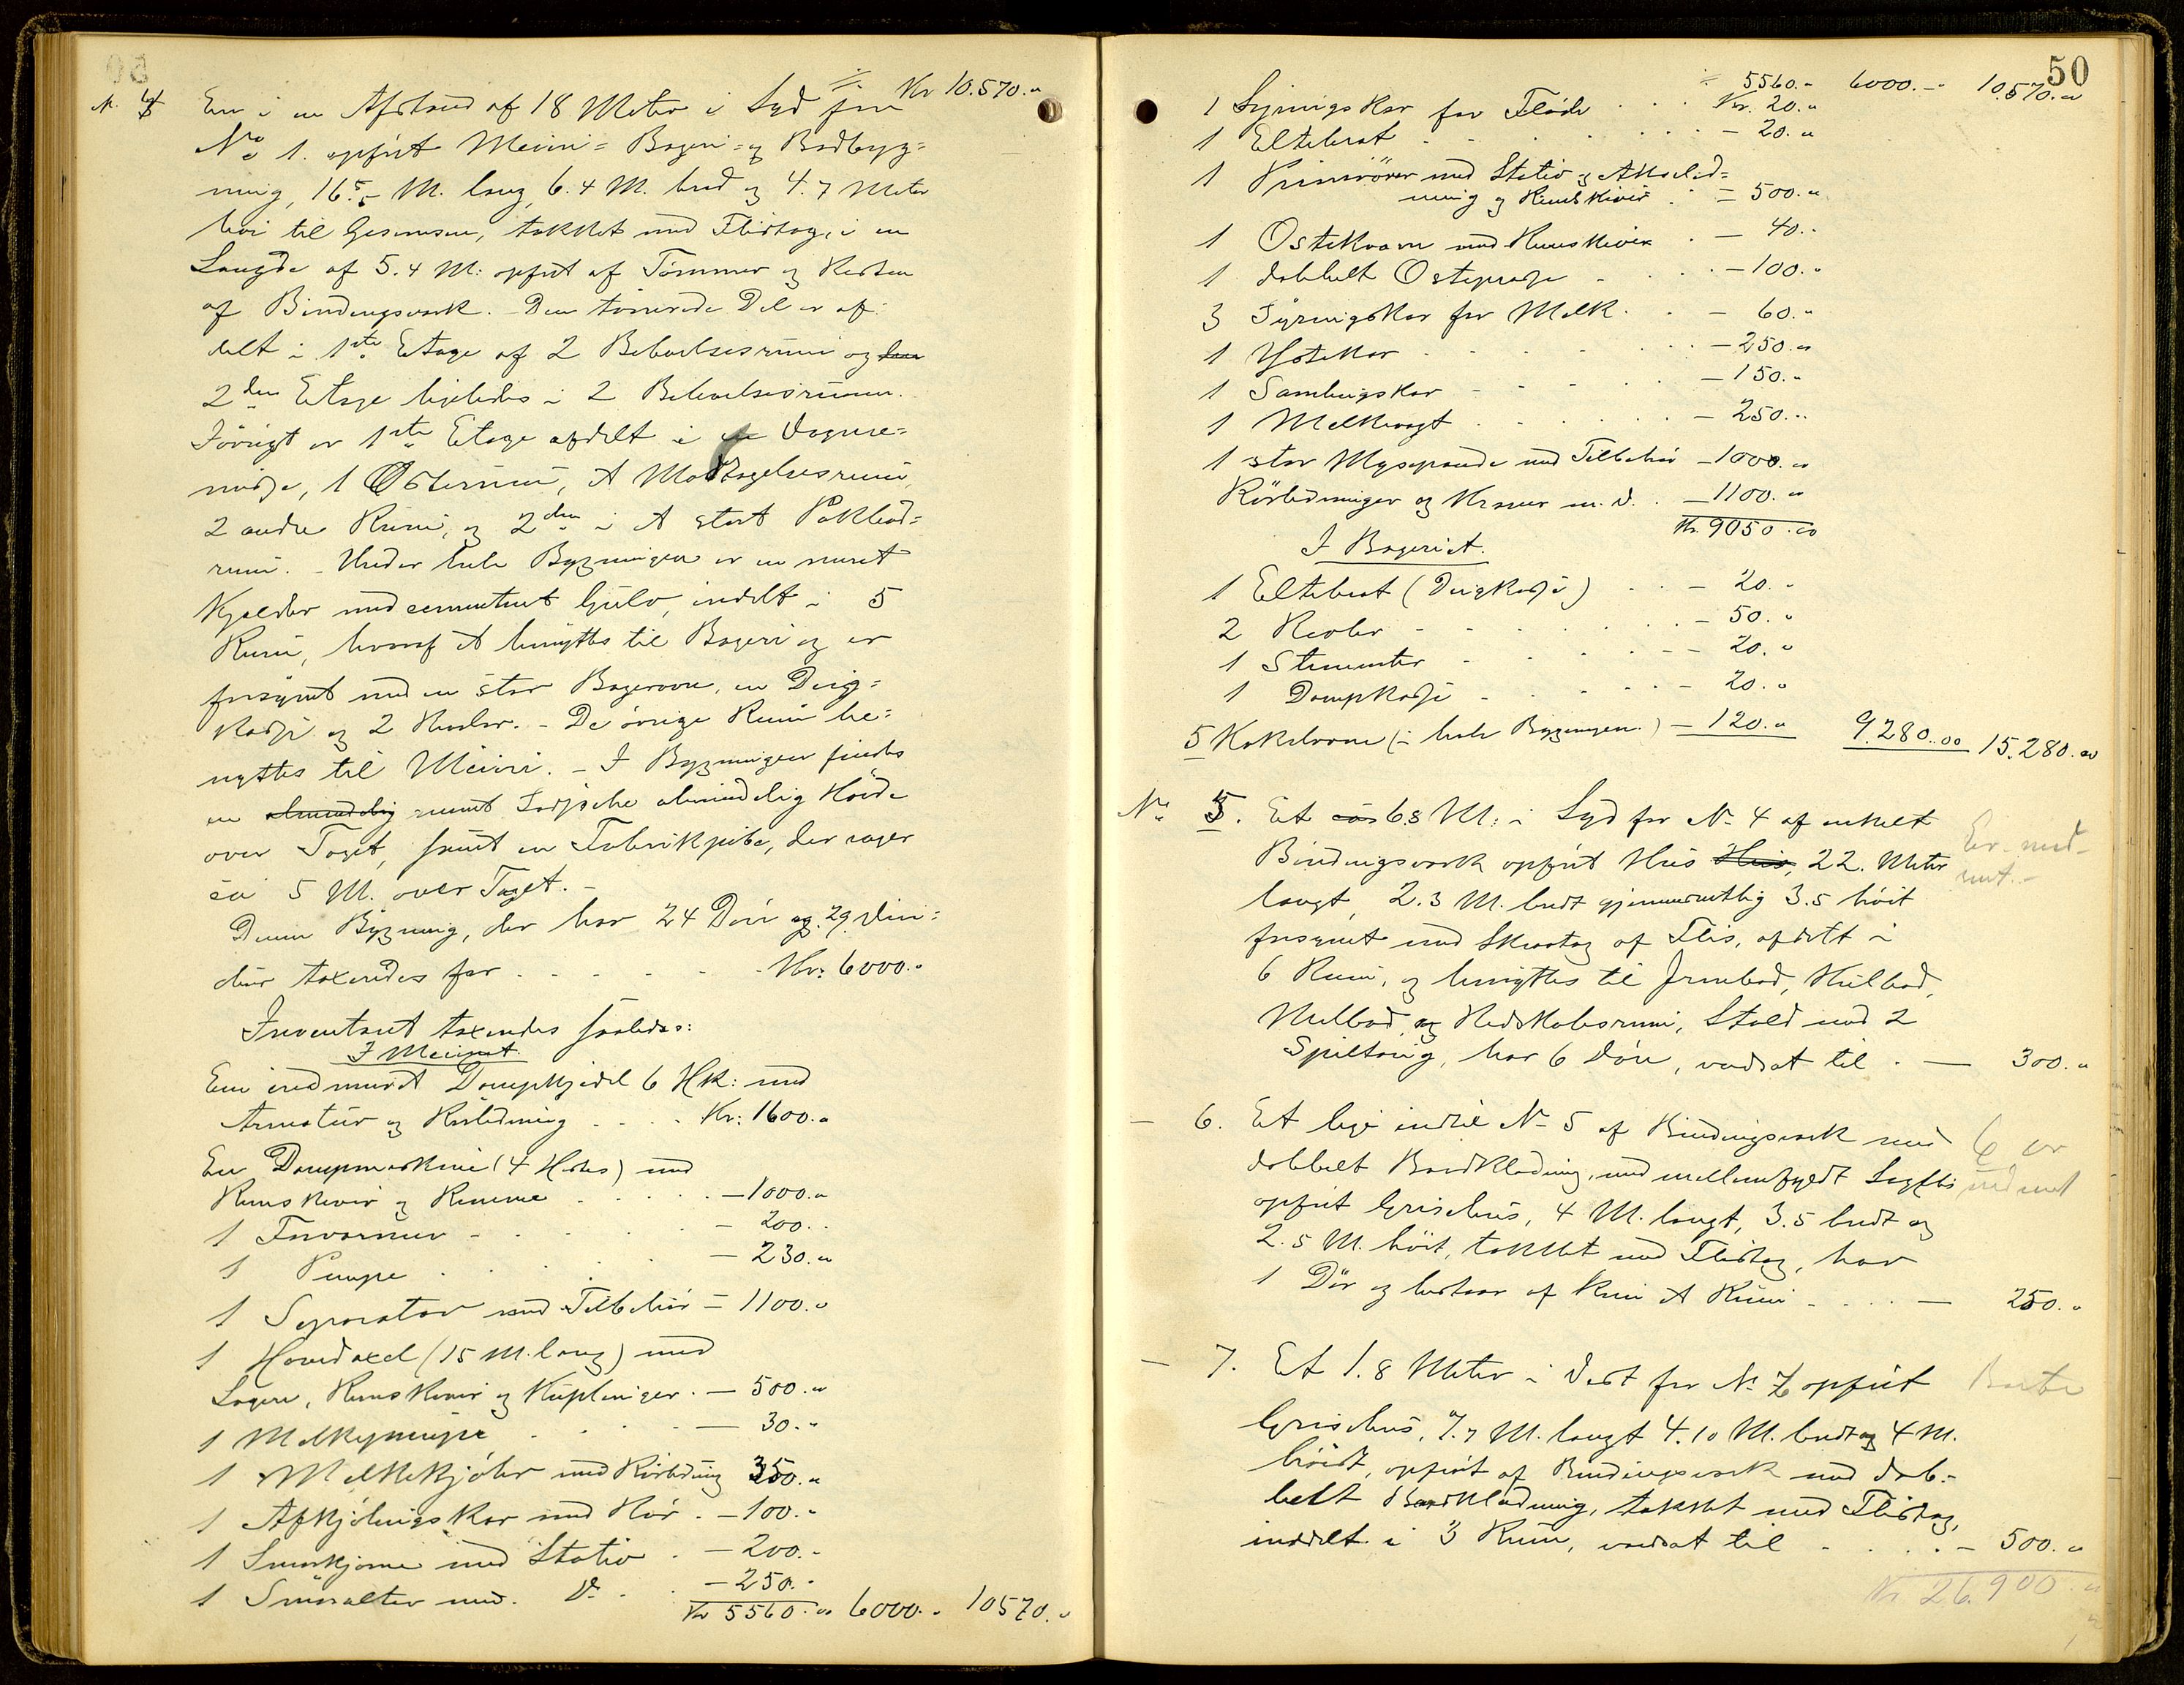 ÷ Kr 10.570.„
N. 4 En i en Afstand af 18 Meter i Syd for
No 1. opført Meieri= Bageri= og Badbyg=
ning, 16.5 M. lang, 6.4 M. bred og 4.7 Meter
høi til Gesimsen, tækket med Flistag, i en
Længde af 5.4 M: opført af Tømmer og Resten
af Bindingsværk. Den tømrede Del er af-
delt i 1ste Etage af 2 Beboelsesrum og
2den Etage ligeledes i 2 Beboelsesrum.
Iøvrigt er 1ste Etage afdelt i Vogne=
1 Osterum, et Modtagelsesrum,
2 andre Rum, og 2den i et stort Pakbod=
rum. – Under hele Bygningen er en muret
Kjelder med cementeret Gulv, inddelt i 5
Rum, hvoraf et benyttes til Bageri og er
forsynet med en stor Bagerovn, en Deig=
kasse og 2 Reoler. – De øvrige Rum be=
nyttes til Meieri. – I Bygningen findes
en almindelig muret almindelig Høide
over Taget, samt en Fabrikpibe, der rager
ca 5 M. over Taget. –
Denne Bygning, der har 24 Dør og 29 Vin=
duer taxeredes for . . . . Kr: 6000.„
Inventaret taxeredes saaledes:
I Meieriet.
En indmuret Dampkjedel 6 HK: med
Armatur og Rørledning . . . . Kr: 1600.„
En Dampmaskine (4 Hestes) med
Remskiver og Remme . . . . — 1000.„
1 Forvarmer . . . . — 200.„
1 Pumpe . . . . — 230.„
1 Separator med Tilbehør = 1100.„
1 Hovedaxel (15 M. lang) med
Lagere, Remskiver og Kuplinger . — 500.„
1 Melkepumpe . . . — 30.„
1 Melkekjøler med Rørledning 350.„
1 Afkjølingskar med Rør . — 100.„
1 Smørkjerne med Stativ . — 200.„
1 Smøralter med Do . — 250.„
Kr 5560.„ 6000.„ 10570.„
50
÷ 5560.„ 6000.„ 10.570.„
1 Syrningskar for Fløde . . . Kr. 20.„
1 Eltebret . . . . . — 20.„
1 Primrører med Stativ og Axelled=
ning og Remskiver . = 500.„
1 Ostekværn med Remskiver . — 40.„
1 dobbelt Ostepresse . . . — 100.„
3 Syrningskar for Melk . . — 60.„
1 Ystekar . . . . . — 250.„
1 Samlingskar . . . . — 150.„
1 Melkevægt . . . . — 250.„
1 stor Mysepande med Tilbehør — 1000.„
Rørledninger og Kraner m. v. . — 1100.„
Kr. 9050.„
I Bageriet.
1 Eltebret (Deigkasse) . . — 20.„
2 Reoler . . . . . — 50.„
1 . . . . — 20.„
1 Dampkasse . . . . — 20.„
5 Kakelovne (i hele Bygningen.) — 120.„ 9.280.00 15.280.„
No 5. Et 6.8 M: i Syd for No 4 af enkelt
Bindingsværk opført Hus Hus, 22. Meter
langt, 2.3 M. bredt gjennemsnitlig 3.5 høit
forsynet med Skraatag af Flis, afdelt i
6 Rum, og benyttes til Jernbod, Kulbod,
Melbod og Redskabsrum, Stald med 2
Spiltoug, har 6 Døre, værdsat til . — 300.„
Er ned-
revet. –
— 6. Et lige indtil No 5 af Bindingsværk med
dobbelt Bordklædning, med mellemfyldt
opført Grisehus, 4 M. langt, 3.5 bredt og
2.5 M. høit, tækket med Flistag, har
1 Dør og bestaar af kun et Rum . . . — 250.„
6 er
nedrevet
— 7. Et 1.8 Meter i Vest for No 6 opført
Grisehus, 7.7 M. langt 4.10 M. bredt og 4 M.
høidt, opført af Bindingsværk med dob-
belt Bordklædning, tækket med Flistag,
inddelt i 3 Rum, værdsat til . . . . — 500.„
Borte
Kr 26.900.„